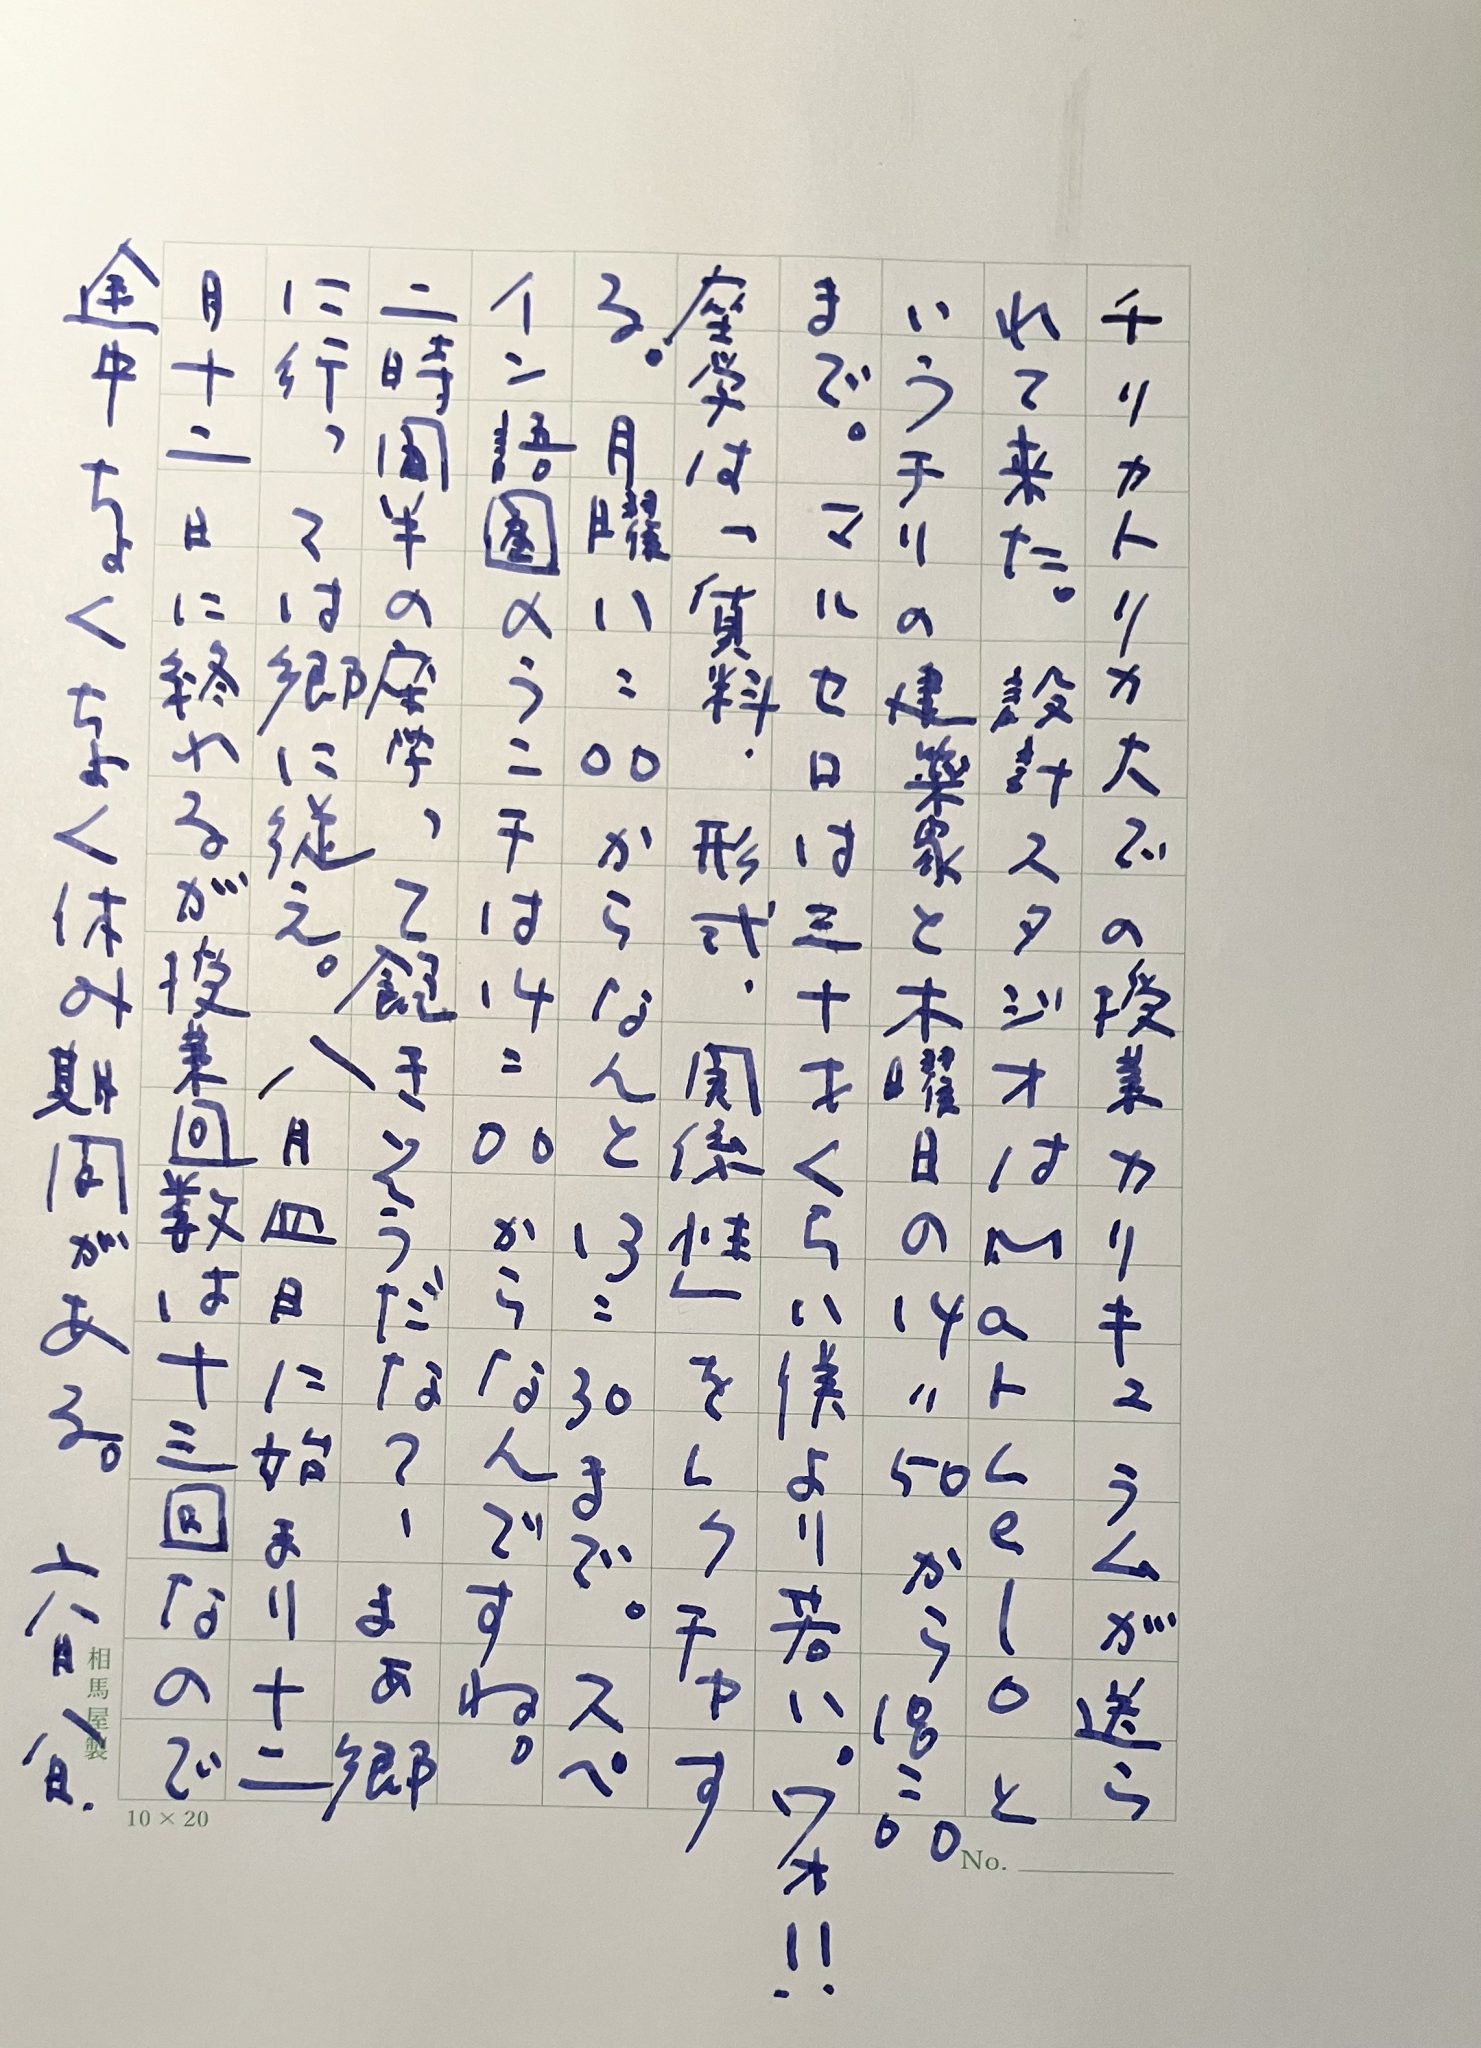 チリカトリカ大での授業カリキュラムが送ら
れて来た。 設計スタジオはMatíasと
いうチリの建築家と木曜日の14:50から18:00
まで。 マルセロは三十才くらい僕より若い。ワオ!!
座学は「質料・形式・関係性」をしクチャす
る。 月曜11:00からなんと13:30まで。 スペ
イン語圏のうニチは14:00からなんですね。
二時間半の座学って飽きそうだなて、まあ郷
に行っては郷に従え。八月四日に始まり十二
月十二日に終わるが授業回数は十三回なので
途中ちょくちょく休み期間がある。 六月八日.
相馬屋製
10×20
No.